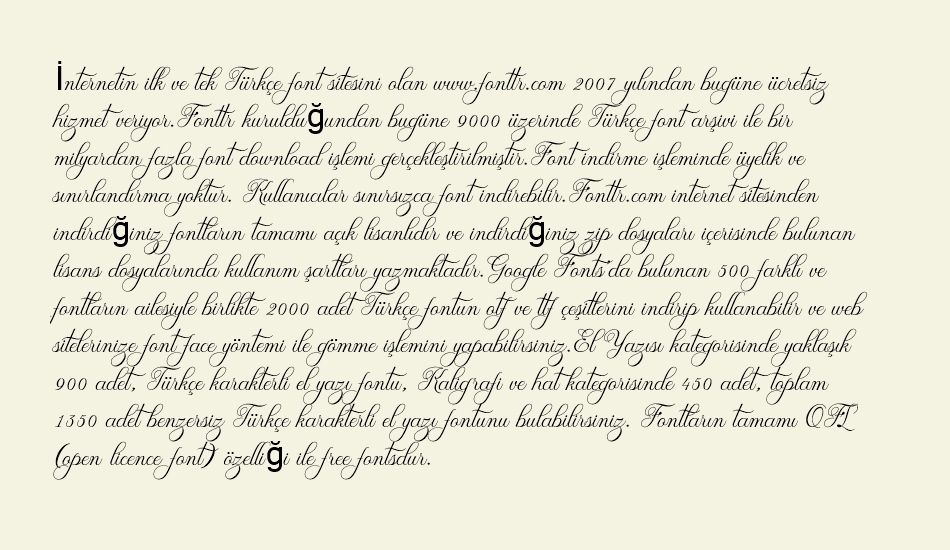 İnternetin ilk ve tek Türkçe font sitesini olan www.fonttr.com 2007 yılından bugüne ücretsiz
hizmet veriyor.Fonttr kurulduğundan bugüne 9000 üzerinde Türkçe font arşivi ile bir
milyardan fazla font download işlemi gerçekleştirilmiştir.Font indirme işleminde üyelik ve
sınırlandırma yoktur. Kullanıcılar sınırsızca font indirebilir.Fonttr.com internet sitesinden
indirdiğiniz fontların tamamı açık lisanlıdır ve indirdiğiniz zip dosyaları içerisinde bulunan
lisans dosyalarında kullanım şartları yazmaktadır.Google Fonts'da bulunan 500 farklı ve
fontların ailesiyle birlikte 2000 adet Türkçe fontun otf ve ttf çeşitlerini indirip kullanabilir ve web
sitelerinize font face yöntemi ile gömme işlemini yapabilirsiniz.El Yazısı kategorisinde yaklaşık
900 adet, Türkçe karakterli el yazı fontu, Kaligrafi ve hat kategorisinde 450 adet, toplam
1350 adet benzersiz Türkçe karakterli el yazı fontunu bulabilirsiniz. Fontların tamamı OFL
(open licence font) özelliği ile free fontsdur.